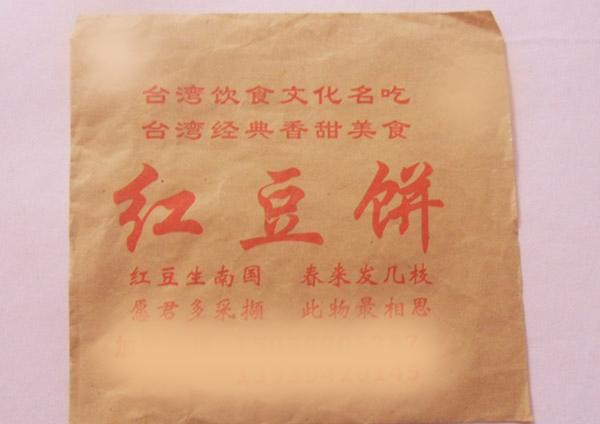 台湾饮食文化名吃
台湾经典香甜美食
红豆饼
红豆生南国 春来发几枝
愿君多采撷 此物最相思